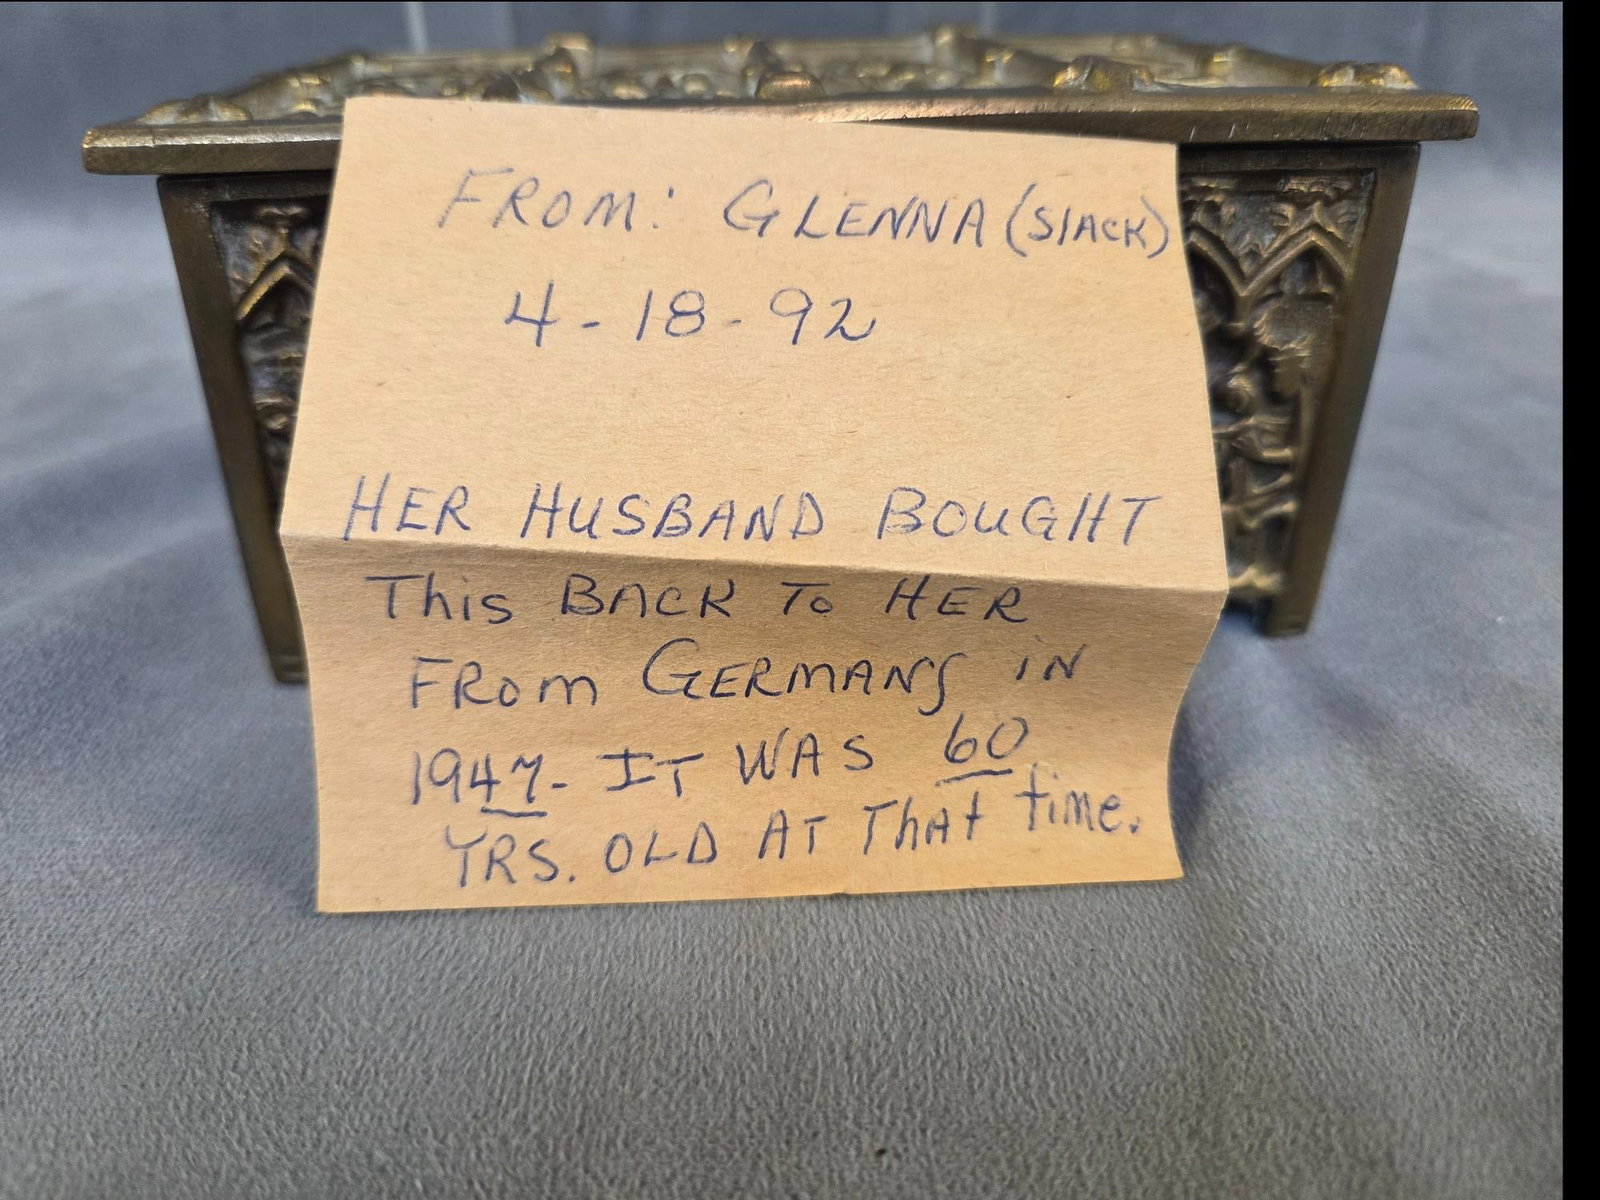 FROM: GLENNA (SlACK)
4-18-92
HER HUSBAND BOUGHT
This BACK To HER
FRom GERMANS iN
1947- IT WAS 60
YRS. OLD AT ThAt time.